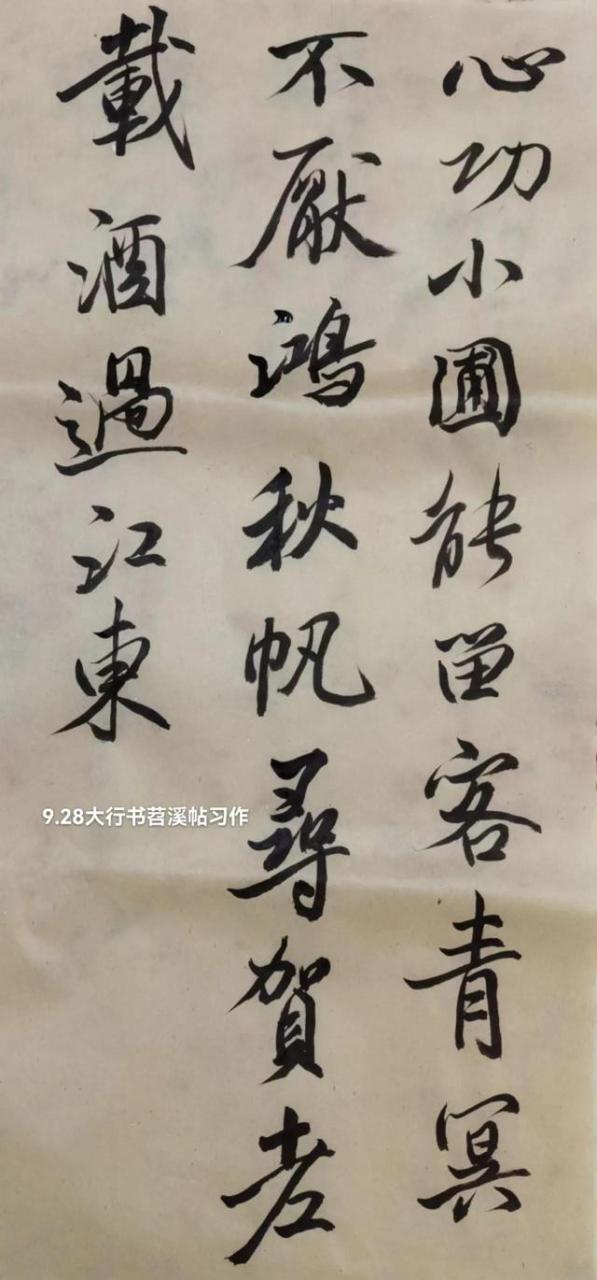 心功小圃能留客青冥
不厭鴻秋帆尋賀老
載酒過江東
9.28大行书苕溪帖习作